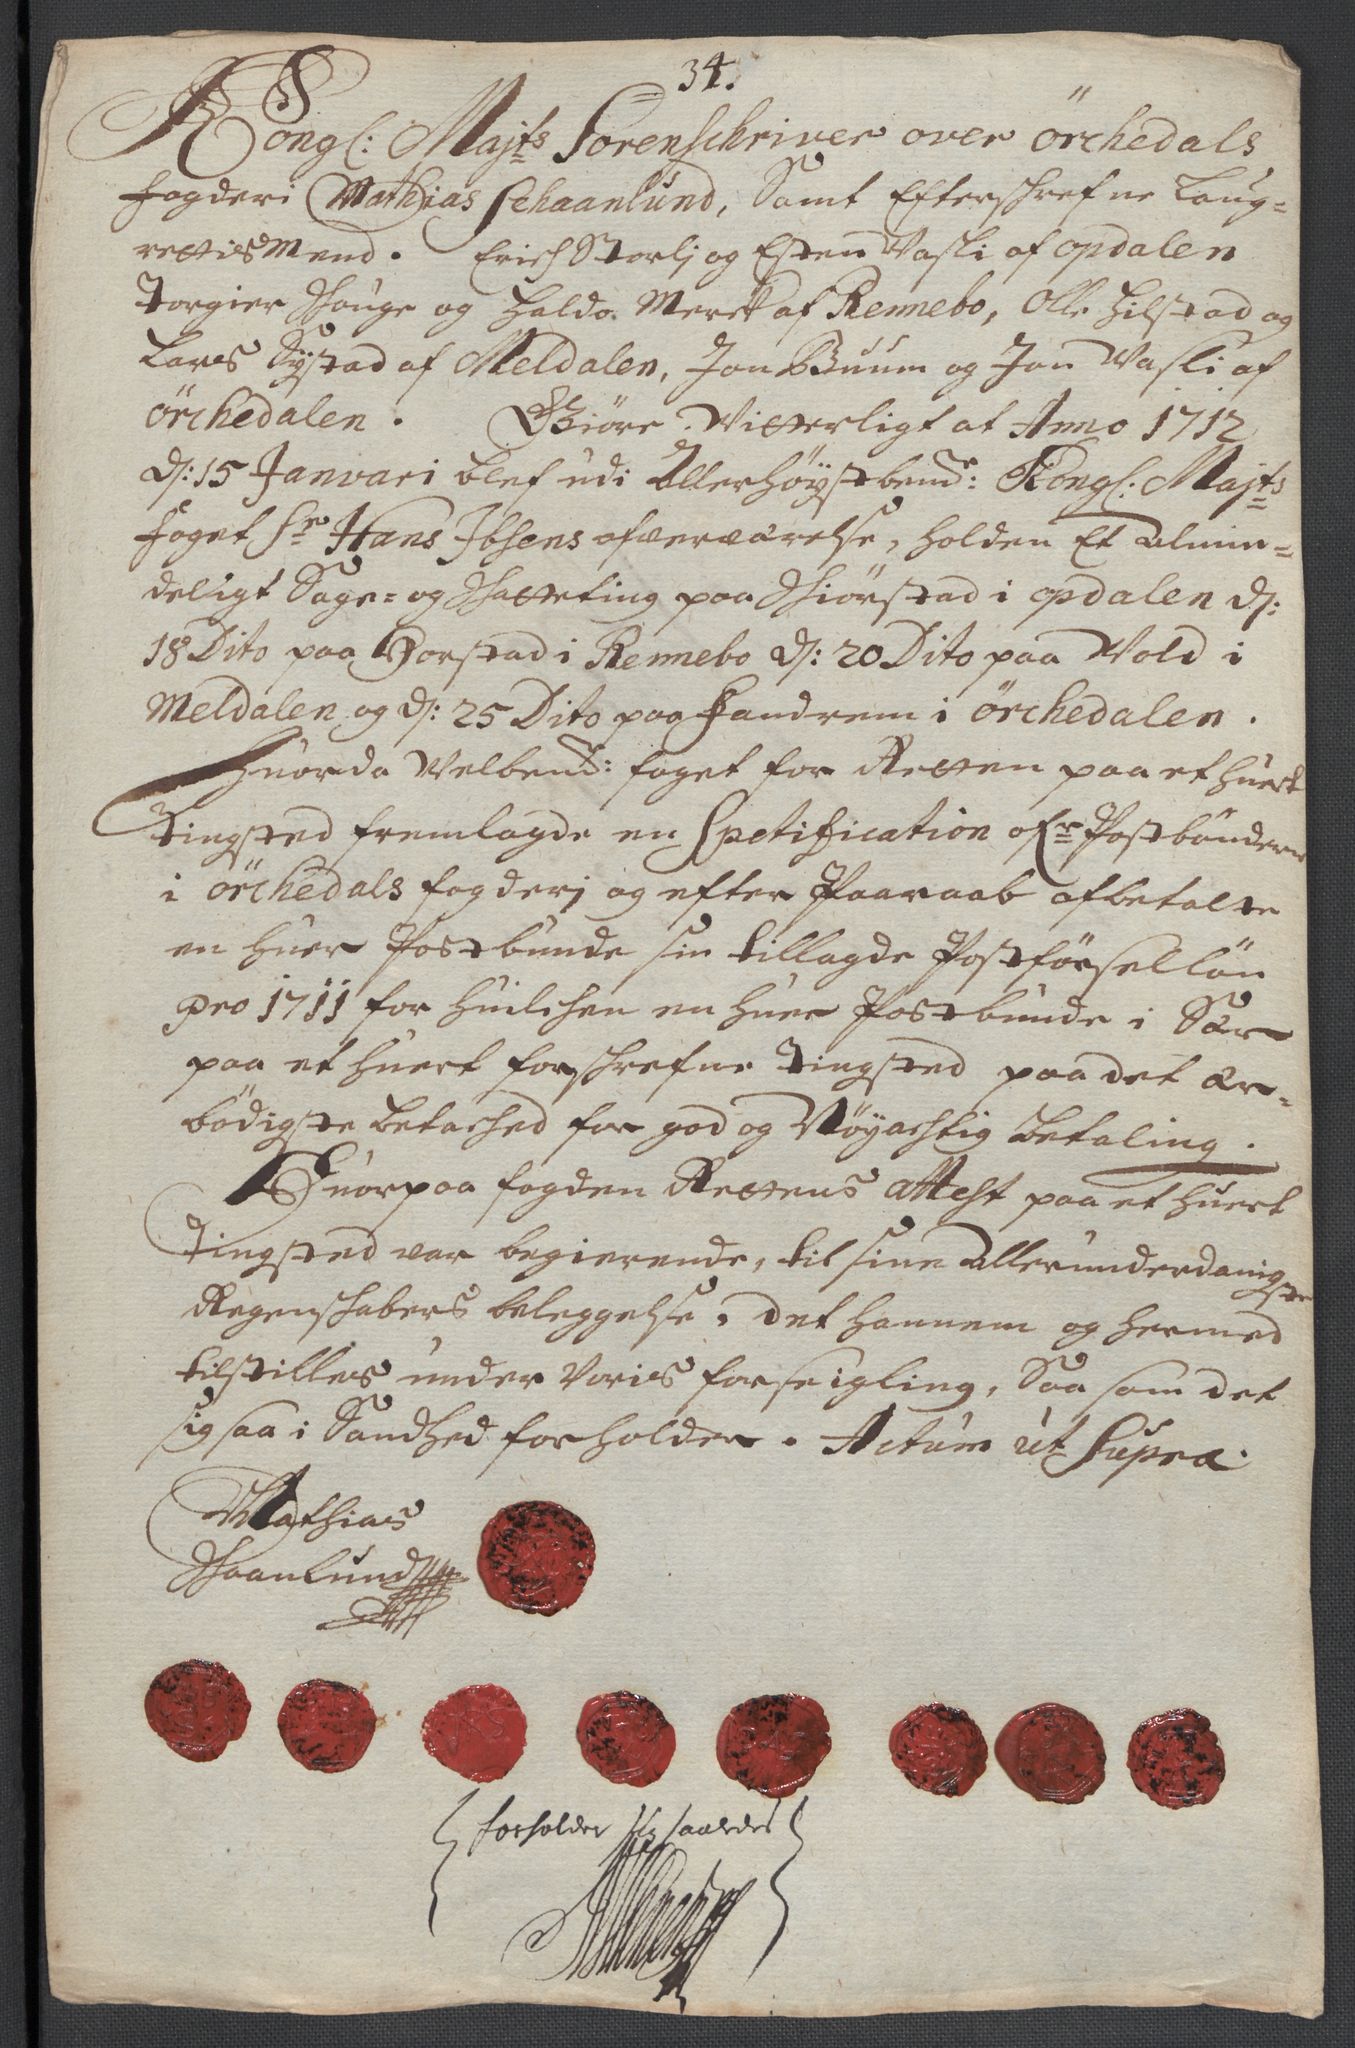 34.
Kongl: Majts Sorenschriver over örchedals
fogderi Mathias Schaanlund, Samt Efterschrefne Laug-
rettismend. Erich Storlj og Esten Vasli af opdalen
Torgier Houge og Haldo Merck af Rennebo, Olle Hilstad og
Lars Systad af Meldalen, Jon Buum og Jon Vasli af
örchedalen. Giöre Vitterligt at Anno 1712
d: 15 Janvari blef udi Allerhöystbemte: Kongl: Majts
foget Sr Hans Ibsens ofverværelse, holden Et almin-
deligt Sage- og Skatteting paa Skiörstad i opdalen d:
18 Dito paa Horstad i Rennebo d: 20 Dito paa Vold i
Meldalen og d: 25 Dito paa Fandrem i örchedalen.
Huor da Velbemte: foget for Retten paa et huert
tingsted fremlagde en Spetification ofr Postbönderne
i örchedals fogderj og efter Paaraab afbetalte
en huer Postbunde sin tillagde Postförsellön
pro 1711 for huilchen en huer Postbunde i Sær
paa et huert forschrefne tingsted paa det ær-
bödigste betached for god og Nöyachtig betaling.
Huorpaa fogden Rettens attest paa et huert
tingsted var begierende, til sine allerunderdanigste
Regenskabers beleggelse, det hannem og hermed
tilstilles under Voris forseigling, Saa som det
sig saa i Sandhed forholder. Actum ut Supra.
Mathias
Skaanlund
forholder sig saaledes